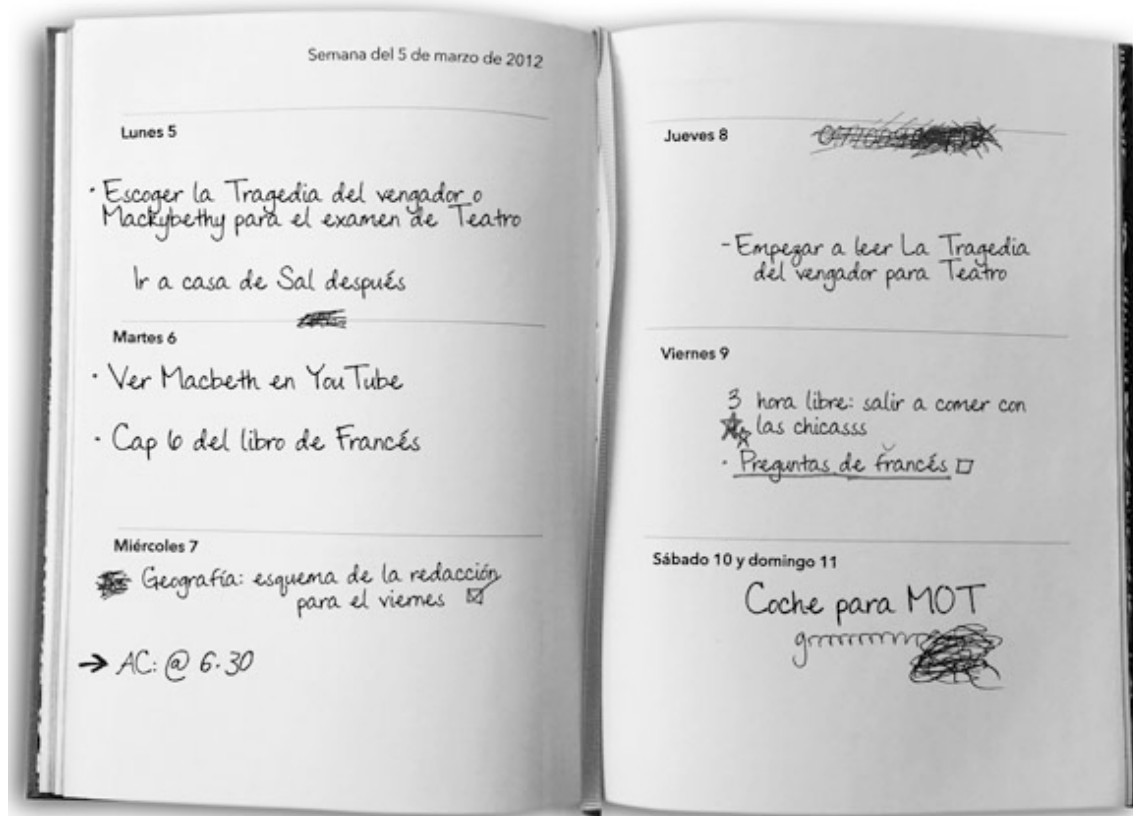 Semana del 5 de marzo de 2012
Lunes 5
· Escoger la Tragedia del vengador o
Mackybethy para el examen de Teatro
Ir a casa de Sal después
Martes 6
· Ver Macbeth en YouTube
· Cap 6 del libro de Francés
Miércoles 7
Geografía: esquema de la redacción
para el viernes
→ AC: @ 6.30
Jueves 8
- Empezar a leer La Tragedia
del vengador para Teatro
Viernes 9
3 hora libre: salir a comer con
las chicasss
· Preguntas de francés
Sábado 10 y domingo 11
Coche para MOT
grrrrrrrrr